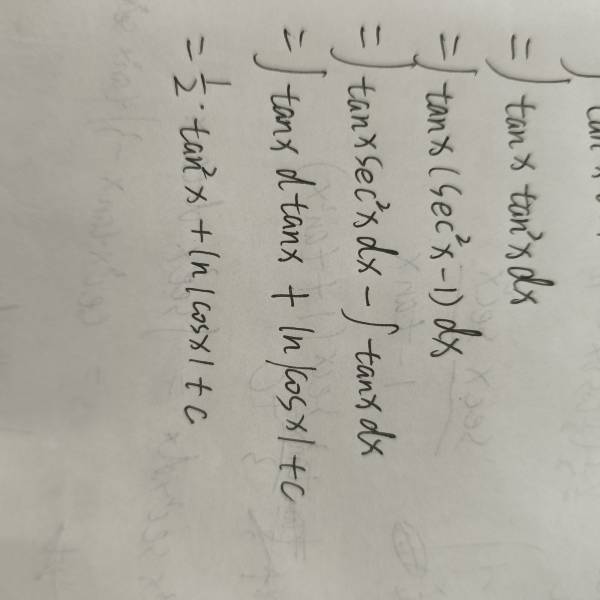 = ∫ tanx tan²x dx
= ∫ tanx (sec²x - 1) dx
= ∫ tanx sec²x dx - ∫ tanx dx
= ∫ tanx d tanx + ln|cosx| + c
= 1/2 · tan²x + ln|cosx| + c